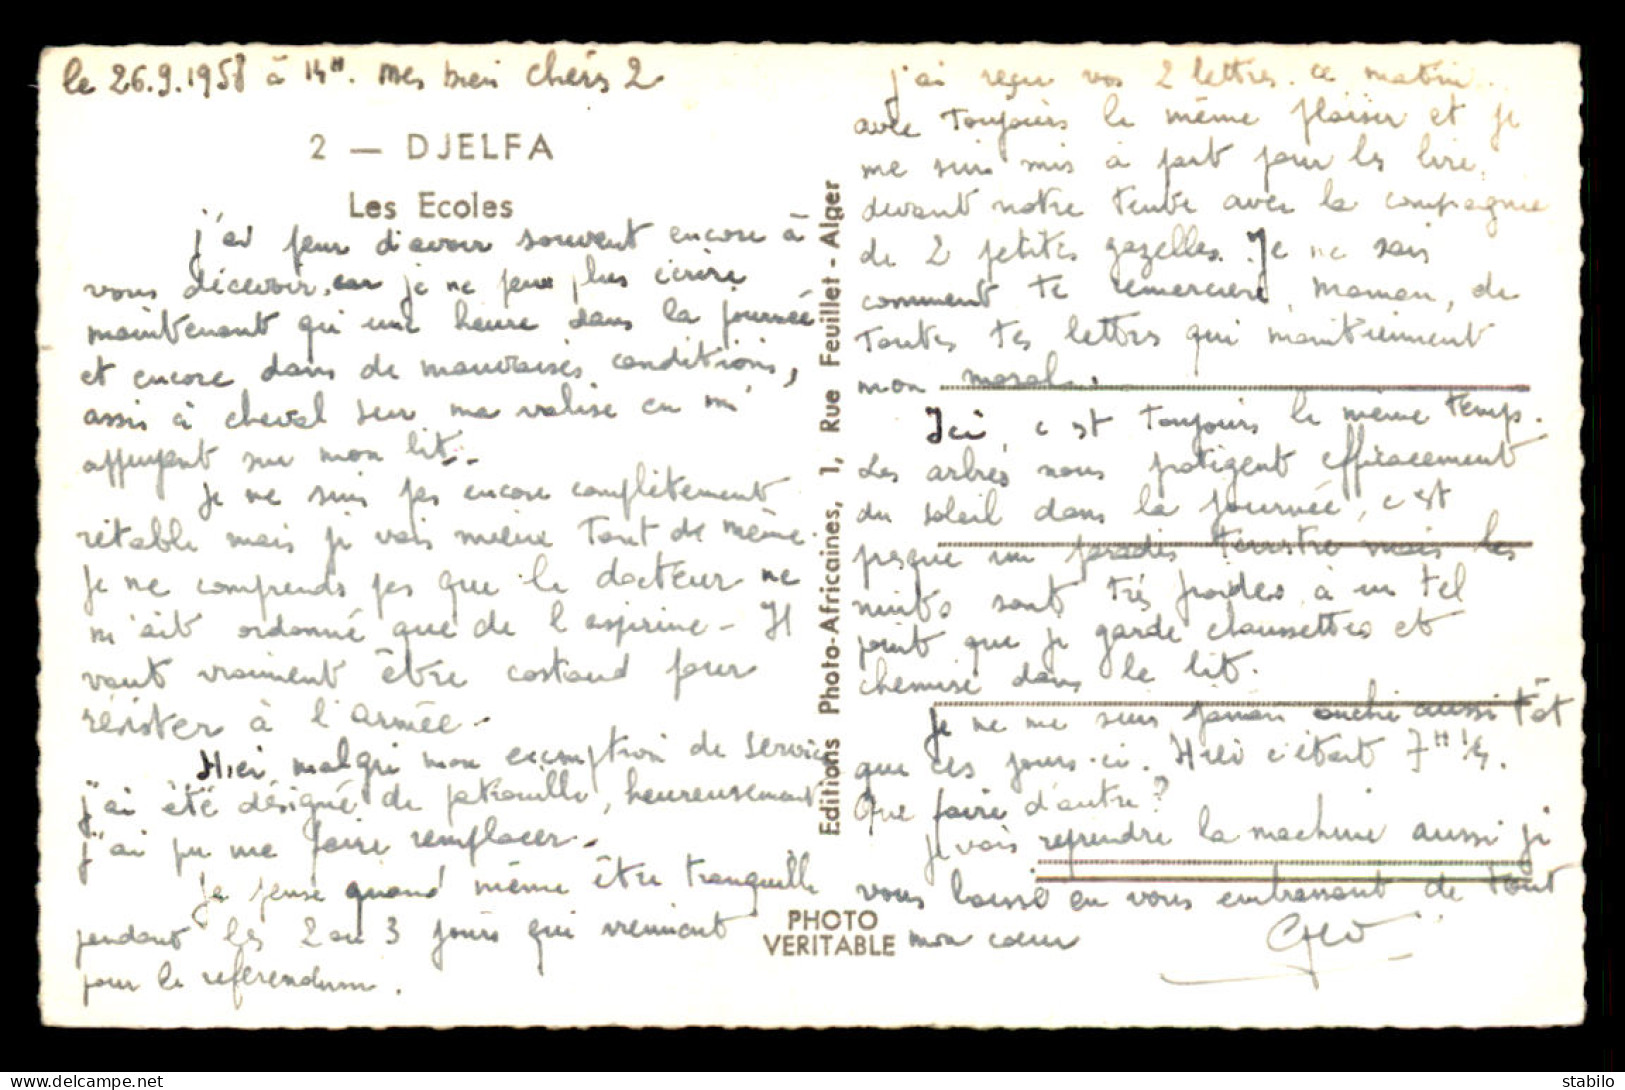 le 26.9.1958 à 14H. Mes bien chers 2
2 — DJELFA
Les Ecoles
j'ai peur d'avoir souvent encore à
vous décevoir, car je ne peux plus écrire
maintenant qu'une heure dans la journée
et encore dans de mauvaises conditions,
assis à cheval sur ma valise en m'
appuyant sur mon lit.
Je ne suis pas encore complètement
rétabli mais je vais mieux tout de même.
Je ne comprends pas que le docteur ne
m'ait ordonné que de l'aspirine - Il
vaut vraiment être costaud pour
résister à l'armée.
Hier, malgré mon exemption de service
j'ai été désigné de patrouille, heureusement
j'ai pu me faire remplacer.
Je pense quand même être tranquille
pendant les 2 ou 3 jours qui viennent
pour le referendum.
Editions Photo-Africaines, 1, Rue Feuillet - Alger
PHOTO
VERITABLE
j'ai reçu vos 2 lettres ce matin
avec toujours le même plaisir et je
me suis mis à part pour les lire,
devant notre tente avec la compagnie
de 2 petites gazelles. Je ne sais
comment te remercier, Maman, de
toutes tes lettres qui maintiennent
mon moral.
Ici, c'est toujours le même temps.
Les arbres nous protègent efficacement
du soleil dans la journée, c'est
presque un paradis terrestre mais les
nuits sont très froides à un tel
point que je garde chaussettes et
chemise dans le lit.
Je ne me suis jamais couché aussi tôt
que ces jours-ci. Hier c'était 7H 1/4.
Que faire d'autre?
Je vais reprendre la machine aussi je
vous laisse en vous embrassant de tout
mon cœur
Géo
stabilo